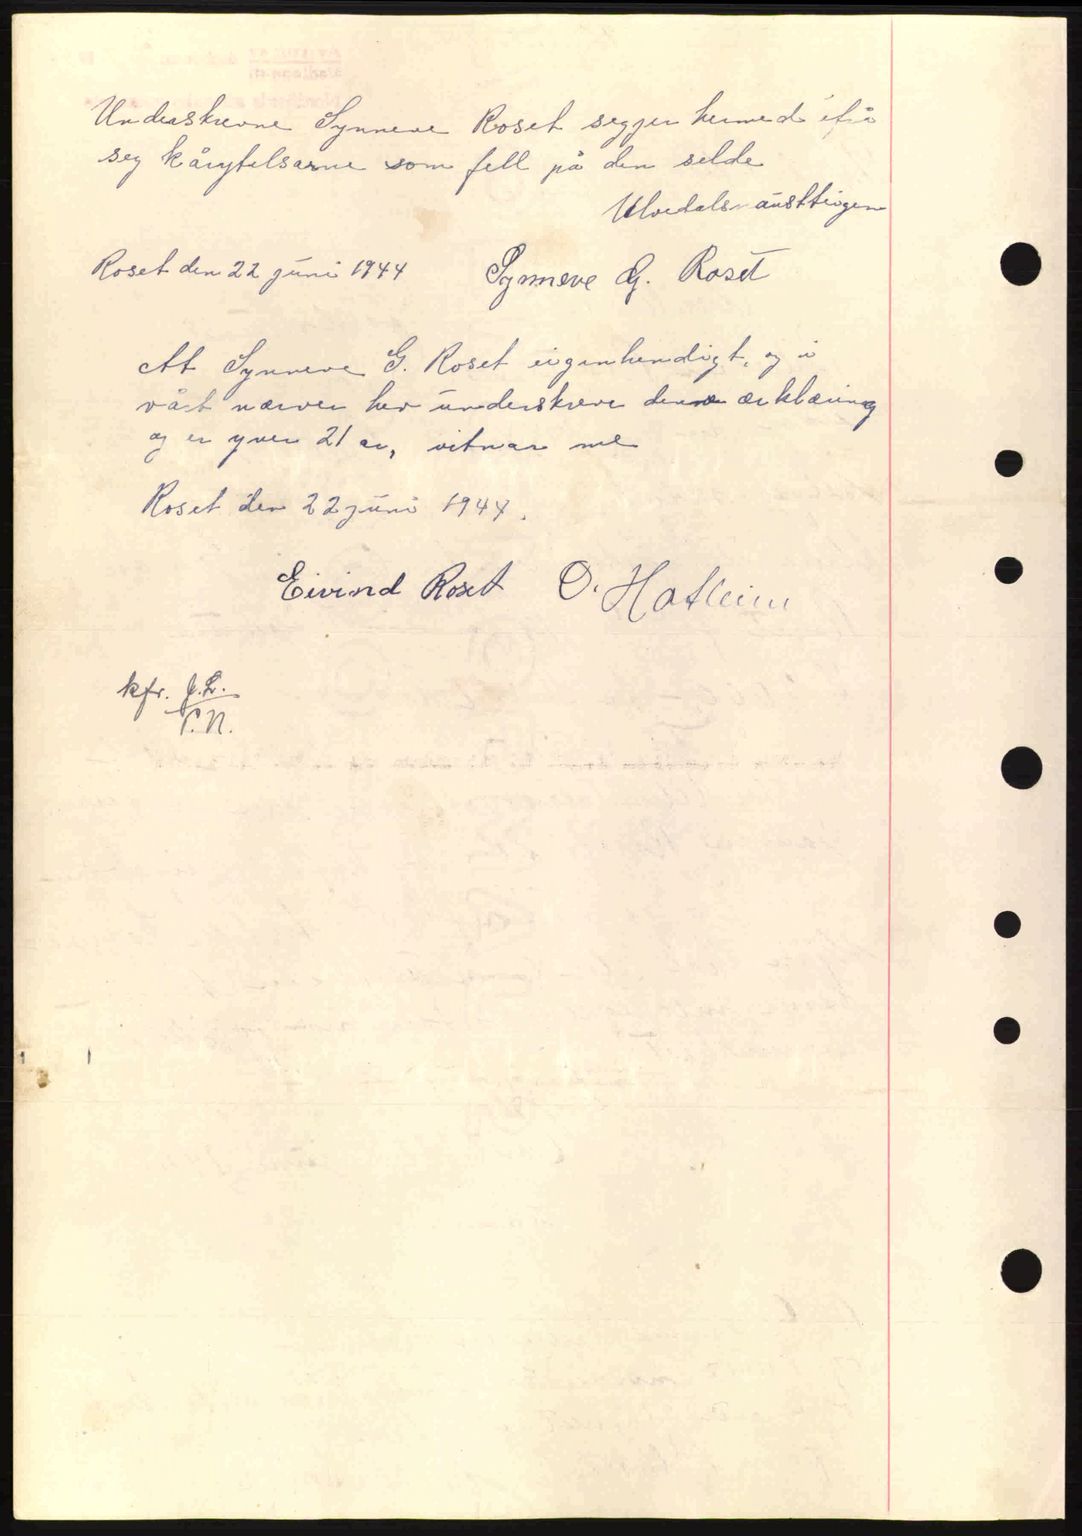 Underskrevne Synneve Roset seggjer hermed ifrå
seg kårytelsarne som fell på den selde
Ulvedals-austteigen
Roset den 22 juni 1944 Synneve G. Roset
At Synneve G. Roset eigenhendigt, og i
vårt nærver hev underskreve denne ærklæring
og er yver 21 ar, vitnar me
Roset den 22 juni 1944.
Eivind Roset O. Hatleim
kfr. J.L.
P.N.